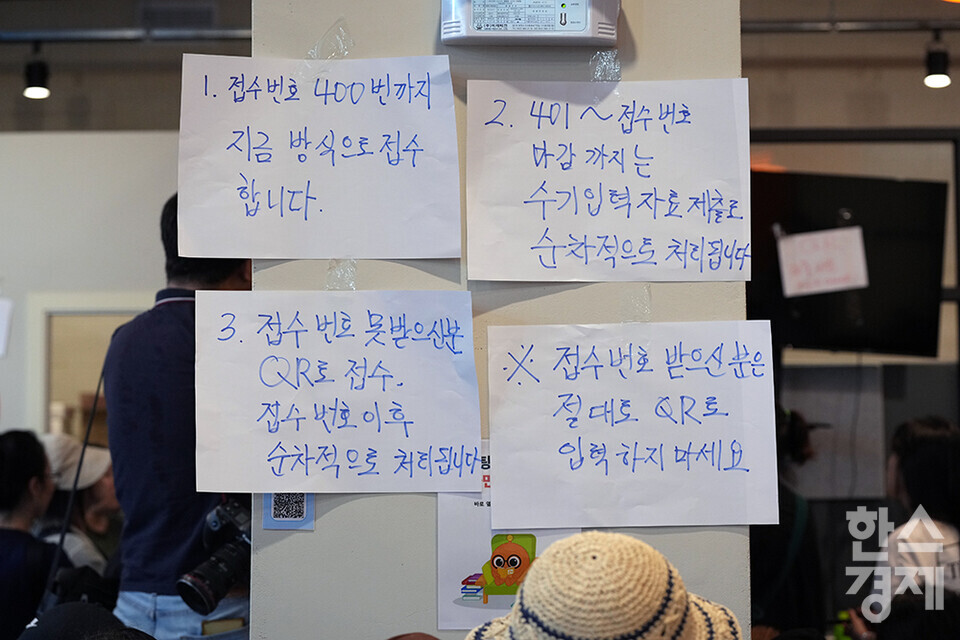 1. 접수번호 400번까지
지금 방식으로 접수
합니다.
2. 401~접수번호
마감 까지는
수기입력자료제출로
순차적으로 처리됩니다
3. 접수 번호 못받으신분
QR로 접수.
접수 번호 이후
순차적으로 처리됩니다
※ 접수번호 받으신분은
절대로 QR로
입력하지 마세요
한스
경제